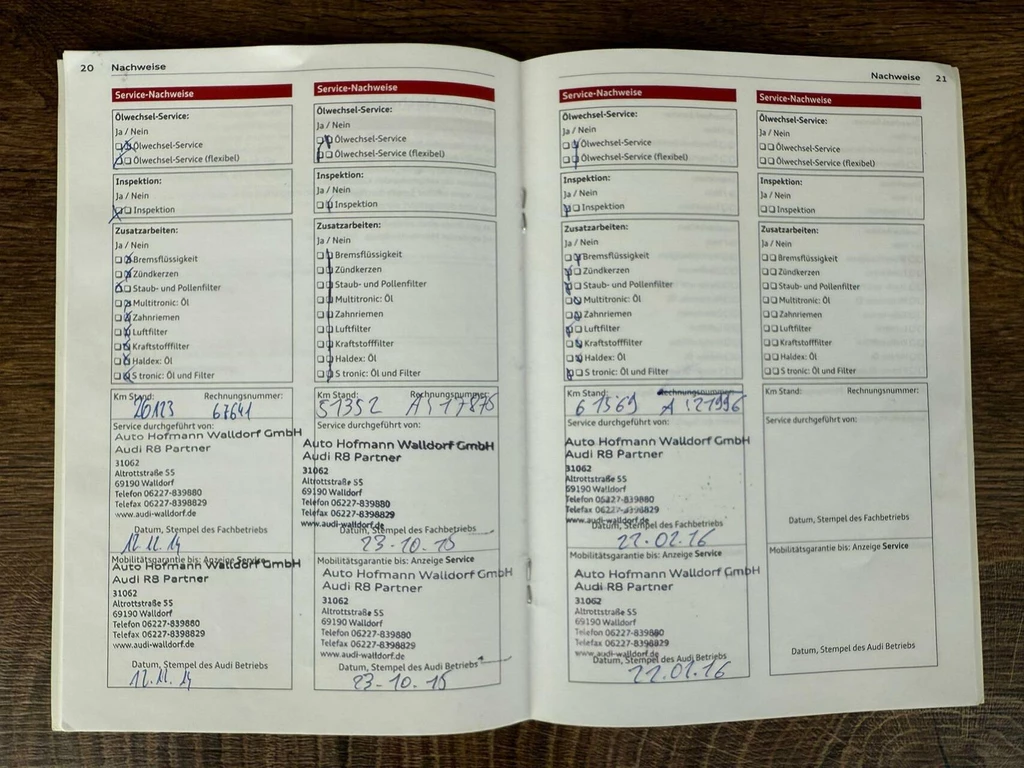 20 Nachweise
Service-Nachweise
Ölwechsel-Service:
Ja / Nein
Ölwechsel-Service
Ölwechsel-Service (flexibel)
Inspektion:
Ja / Nein
Inspektion
Zusatzarbeiten:
Ja / Nein
Bremsflüssigkeit
Zündkerzen
Staub- und Pollenfilter
Multitronic: Öl
Zahnriemen
Luftfilter
Kraftstofffilter
Haldex: Öl
S tronic: Öl und Filter
Km Stand: Rechnungsnummer:
26123 67641
Service durchgeführt von:
Auto Hofmann Walldorf GmbH
Audi R8 Partner
31062
Altrottstraße 55
69190 Walldorf
Telefon 06227-839880
Telefax 06227-8398829
www.audi-walldorf.de
Datum, Stempel des Fachbetriebs
12.11.14
Mobilitätsgarantie bis: Anzeige Service
Auto Hofmann Walldorf GmbH
Audi R8 Partner
31062
Altrottstraße 55
69190 Walldorf
Telefon 06227-839880
Telefax 06227-8398829
www.audi-walldorf.de
Datum, Stempel des Audi Betriebs
12.11.14
Service-Nachweise
Ölwechsel-Service:
Ja / Nein
Ölwechsel-Service
Ölwechsel-Service (flexibel)
Inspektion:
Ja / Nein
Inspektion
Zusatzarbeiten:
Ja / Nein
Bremsflüssigkeit
Zündkerzen
Staub- und Pollenfilter
Multitronic: Öl
Zahnriemen
Luftfilter
Kraftstofffilter
Haldex: Öl
S tronic: Öl und Filter
Km Stand: Rechnungsnummer:
51352
Service durchgeführt von:
Auto Hofmann Walldorf GmbH
Audi R8 Partner
31062
Altrottstraße 55
69190 Walldorf
Telefon 06227-839880
Telefax 06227-8398829
www.audi-walldorf.de
Datum, Stempel des Fachbetriebs
23-10.15
Mobilitätsgarantie bis: Anzeige Service
Auto Hofmann Walldorf GmbH
Audi R8 Partner
31062
Altrottstraße 55
69190 Walldorf
Telefon 06227-839880
Telefax 06227-8398829
www.audi-walldorf.de
Datum, Stempel des Audi Betriebs
23-10.15
Nachweise 21
Service-Nachweise
Ölwechsel-Service:
Ja / Nein
Ölwechsel-Service
Ölwechsel-Service (flexibel)
Inspektion:
Ja / Nein
Inspektion
Zusatzarbeiten:
Ja / Nein
Bremsflüssigkeit
Zündkerzen
Staub- und Pollenfilter
Multitronic: Öl
Zahnriemen
Luftfilter
Kraftstofffilter
Haldex: Öl
S tronic: Öl und Filter
Km Stand: Rechnungsnummer:
61569
Service durchgeführt von:
Auto Hofmann Walldorf GmbH
Audi R8 Partner
31062
Altrottstraße 55
69190 Walldorf
Telefon 06227-839880
Telefax 06227-8398829
www.audi-walldorf.de
Datum, Stempel des Fachbetriebs
Mobilitätsgarantie bis: Anzeige Service
Auto Hofmann Walldorf GmbH
Audi R8 Partner
31062
Altrottstraße 55
69190 Walldorf
Telefon 06227-839880
Telefax 06227-8398829
www.audi-walldorf.de
Datum, Stempel des Audi Betriebs
Service-Nachweise
Ölwechsel-Service:
Ja / Nein
Ölwechsel-Service
Ölwechsel-Service (flexibel)
Inspektion:
Ja / Nein
Inspektion
Zusatzarbeiten:
Ja / Nein
Bremsflüssigkeit
Zündkerzen
Staub- und Pollenfilter
Multitronic: Öl
Zahnriemen
Luftfilter
Kraftstofffilter
Haldex: Öl
S tronic: Öl und Filter
Km Stand: Rechnungsnummer:
Service durchgeführt von:
Datum, Stempel des Fachbetriebs
Mobilitätsgarantie bis: Anzeige Service
Datum, Stempel des Audi Betriebs